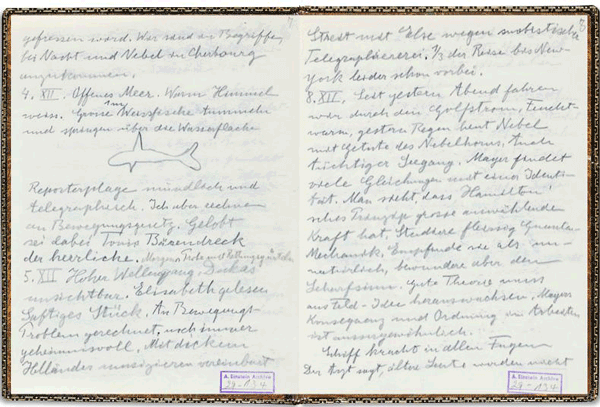 gefressen ward. Wir sind im Begriffe,
bei Nacht und Nebel in Cherbourg
anzukommen.
4. XII. Offenes Meer. Warm Himmel
weiss. Grosse Weissfische tummeln
und springen über die Wasserfläche
Reporterplage mündlich und
telegraphisch. Ich aber rechne
an Bewegungsgesetz. Gelobt
sei dabei Tonis Bärendreck
der herrliche.
5. XII Hoher Wellengang. Dukas
unsichtbar. Elisabeth gelesen
Saftiges Stück. An Bewegungs-
Problem gerechnet, noch immer
geheimnisvoll. Mit dickem
Holländer musizieren vereinbart
A. Einstein Archive
29-134
8
Streit mit Else wegen
Telegraphiererei. 1/3 der Reise bis New-
york leider schon vorbei.
8. XII. Seit gestern Abend fahren
wir durch den Golfstrom, Feucht-
warm, gestern Regen heut Nebel
mit Getute des Nebelhorns, Auch
tüchtiger Seegang. Mayer findet
viele Gleichungen mit einer Identi-
tät. Man sieht, dass Hamilton'
sches Prinzip grosse auswählende
Kraft hat. Studiere fleissig Quanten-
Mechanik. Empfinde sie als un-
natürlich, bewundere aber den
Scharfsinn. Gute Theorie muss
aus Feld-Idee herauswachsen. Mayers
Konsequenz und Ordnung im Arbeiten
ist aussergewöhnlich.
Schiff kracht in allen Fugen
Der Arzt sagt, ältere Leute werden nicht
A. Einstein Archive
29-134